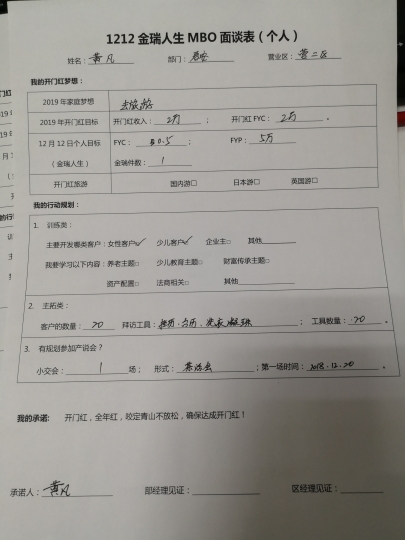 1212 金瑞人生 MBO 面谈表（个人）
姓名：黄凡 部门： 营业区：营二区
我的开门红梦想：
2019 年家庭梦想 去旅游
2019 年开门红目标 开门红收入：2万； 开门红 FYC：2万。
12 月 12 日个人目标（金瑞人生） FYC：0.5； FYP：5万
金瑞件数：1
开门红旅游 国内游□ 日本游□ 英国游□
我的行动规划：
1. 训练类：
主要开发哪类客户：女性客户✓ 少儿客户✓ 企业主□ 其他
我要学习以下内容：养老主题□ 少儿教育主题□ 财富传承主题□
资产配置□ 法商相关□ 其他
2. 主拓类：
客户的数量：20 拜访工具：台历、； 工具数量：20。
3. 有规划参加产说会？
小交会：1场； 形式：；第一场时间：2018.12.20。
我的承诺： 开门红，全年红，咬定青山不放松，确保达成开门红！
承诺人：黄凡 部经理见证： 区经理见证：